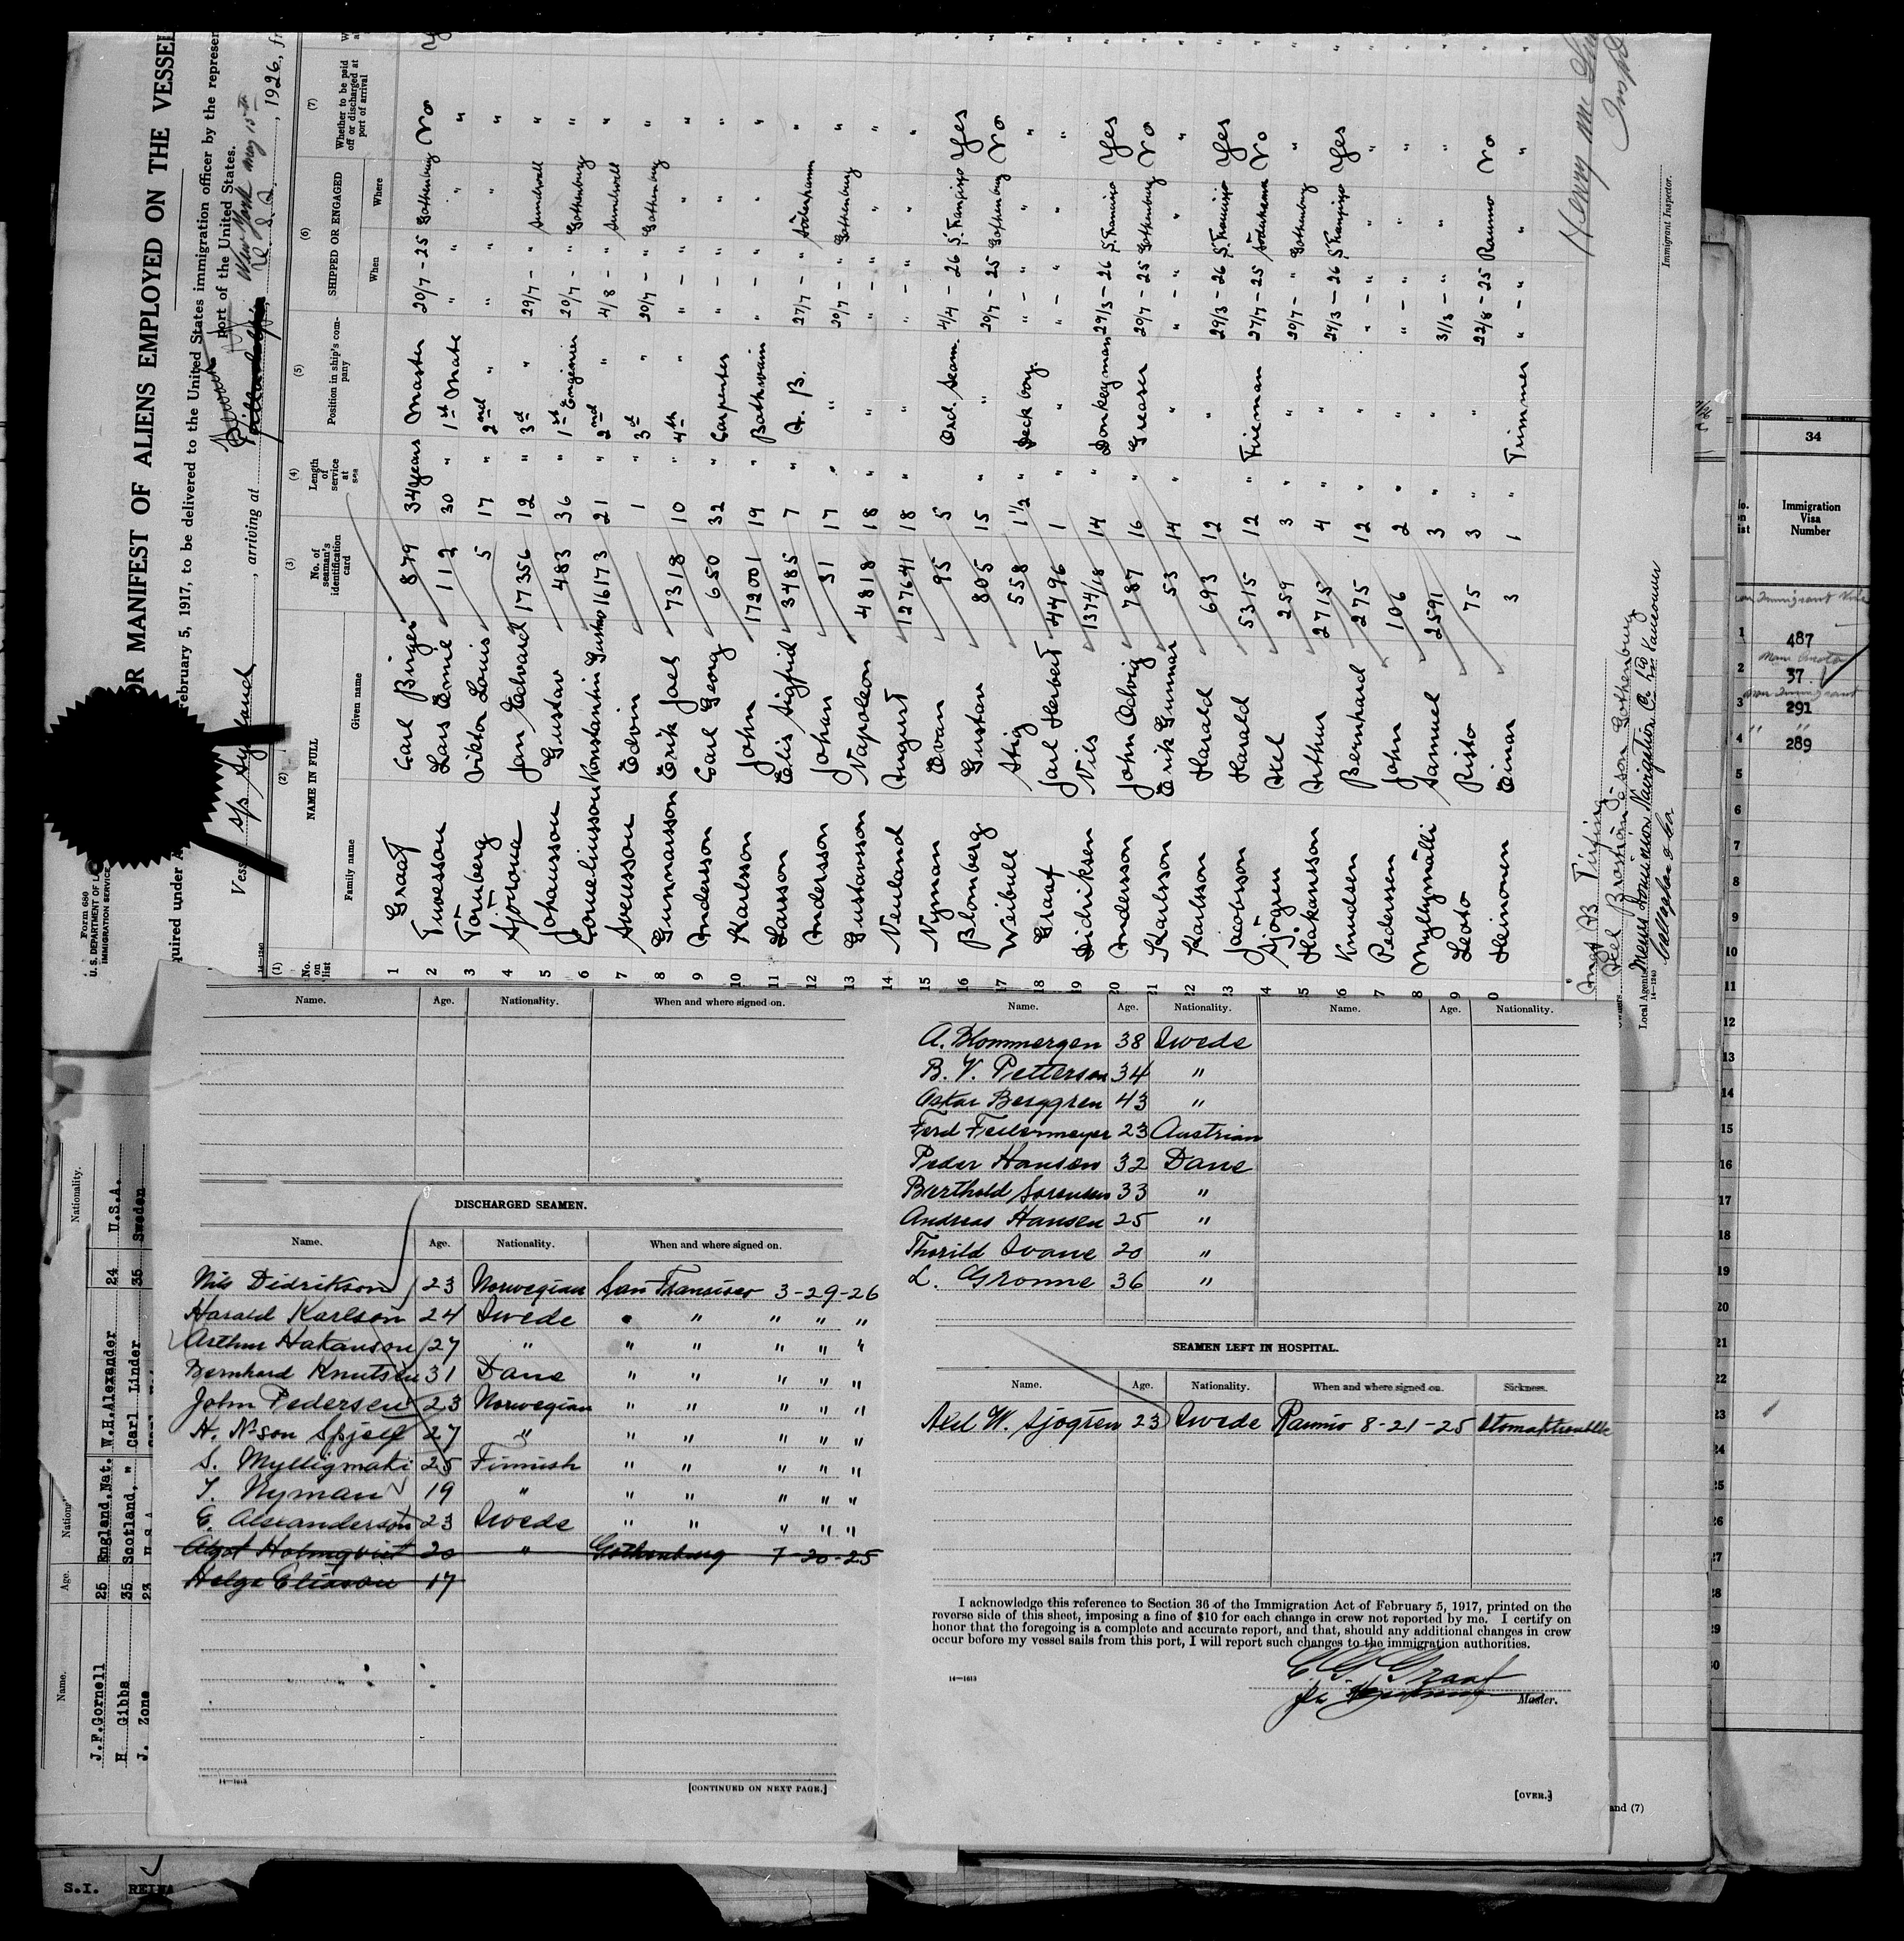 Form 680
U. S. DEPARTMENT OF L
IMMIGRATION SERVICE
OR MANIFEST OF ALIENS EMPLOYED ON THE VESSEL
quired under A
February 5, 1917, to be delivered to the United States immigration officer by the represen
port of the United States.
Vess S/S Sydland, arriving at New York May 15th, 1926, fr
(1) (2) (3) (4) (5) (6) (7)
No. on list
NAME IN FULL
Family name Given name
No. of seaman's identification card
Length of service at sea
Position in ship's company
SHIPPED OR ENGAGED
When Where
Whether to be paid off or discharged at port of arrival
1 Graaf Carl Birger 879 34 years Master 20/7 - 25 Gothenburg No
2 Tuvesson Lars Emil 112 30 " 1st Mate " " "
3 Törnberg Viktor Louis 5 17 " 2nd " " " "
4 Jan Edvard 17356 12 " 3rd " 29/7 - " Sundsvall "
5 Johansson Gustav 483 36 " 1st Engineer 20/7 - " Gothenburg "
6 Corneliusson Konstantin Gustav 16173 21 " 2nd " 4/8 - " Sundsvall "
7 Svensson Edvin 1 " 3d " 20/7 - " Gothenburg "
8 Gunnarsson Erik Joel 7318 10 " 4th " " - " " "
9 Andersson Carl Georg 650 32 " Carpenter " - " " "
10 Karlsson John 172001 19 " " - " " "
11 Larsson Elis Sigfrid 3485 7 " A. B. 27/7 - " Söderhamn "
12 Andersson Johan 31 17 " " 20/7 - " Gothenburg "
13 Gustavsson Napoleon 4818 18 " " " - " " "
14 Neuland August 127641 18 " " " - " " "
15 Nyman Evan 95 5 " Ord. Seam. 4/4 - 26 Yes
16 Blomberg Gustav 805 15 " " 20/7 - 25 Gothenburg No
17 Weibull Stig 558 1 1/2 " Deck boy " - " " "
18 Graaf Carl Herbert 4496 1 " " " - " " "
19 Didriksen Nils 1374/18 14 " Donkeyman 29/3 - 26 Yes
20 Andersson John Ludvig 787 16 " Greaser 20/7 - 25 Gothenburg No
21 Karlsson Erik Gunnar 53 14 " " " - " " "
22 Karlsson Harald 693 12 " 29/3 - 26 Yes
23 Jacobsson Harald 5315 12 " Fireman 27/7 - 25 Söderhamn No
4 Sjögren Axel 259 3 " " 20/7 - " Gothenburg "
5 Håkansson Arthur 2715 4 " " 29/3 - 26 Yes
6 Knudsen Bernhard 275 12 " " " - " " "
7 Pedersen John 106 2 " " " - " " "
8 Myllymälli Samuel 2591 3 " " 31/3 - " " "
9 Risto 75 3 " " 22/8 - 25 Raumo No
0 Heinonen Einar 3 1 " Trimmer " - " " "
Ångf. AB Tirfing
Owners Axel Broström & Son Gothenburg
Local Agents Messrs Dominion Navigation Co. Ltd. Vancouver
14—1240
Immigrant Inspector.
34
Immigration Visa Number
487
37
291
289
Name. Age. Nationality. When and where signed on.
DISCHARGED SEAMEN.
Name. Age. Nationality. When and where signed on.
Nils Didrikson 23 Norwegian San Fransisco 3-29-26
Harald Karlson 24 Swede " " " " "
Arthur Hakanson 27 " " " " " "
Bernhard Knutsen 31 Dane " " " " "
John Pedersen 23 Norwegian " " " " "
H. N-son Spjelf 27 " " " " " "
S. Mylligmaki 25 Finnish " " " " "
T. Nyman 19 " " " " " "
E. Alexanderson 23 Swede " " " " "
Algot Holmqvist 20 " Gothenburg 7-20-25
Helge Eliason 17
14—1613
[CONTINUED ON NEXT PAGE.]
Name. Age. Nationality. Name. Age. Nationality.
A. Blommergen 38 Swede
B. V. Petterson 34 "
Oskar Berggren 43 "
Ferd Feilermeyer 23 Austrian
Peder Hansen 32 Dane
Berthold Sorensen 33 "
Andreas Hansen 25 "
Thorild Svane 20 "
L. Gronne 36 "
SEAMEN LEFT IN HOSPITAL.
Name. Age. Nationality. When and where signed on. Sickness.
Axel W. Sjogren 23 Swede Raumo 8-21-25 Stomaktrouble
I acknowledge this reference to Section 36 of the Immigration Act of February 5, 1917, printed on the
reverse side of this sheet, imposing a fine of $10 for each change in crew not reported by me. I certify on
honor that the foregoing is a complete and accurate report, and that, should any additional changes in crew
occur before my vessel sails from this port, I will report such changes to the immigration authorities.
C. B. Graaf
Master.
14—1613
[OVER.]
and (7)
Name. Age. Nationality.
J.F.Gornell 25 England, Nat. W.H.Alexander 24 U.S.A.
H Gibbs 35 Scotland, " Carl Linder 35 Sweden
J. Zone 23 U.S.A.
S.I.